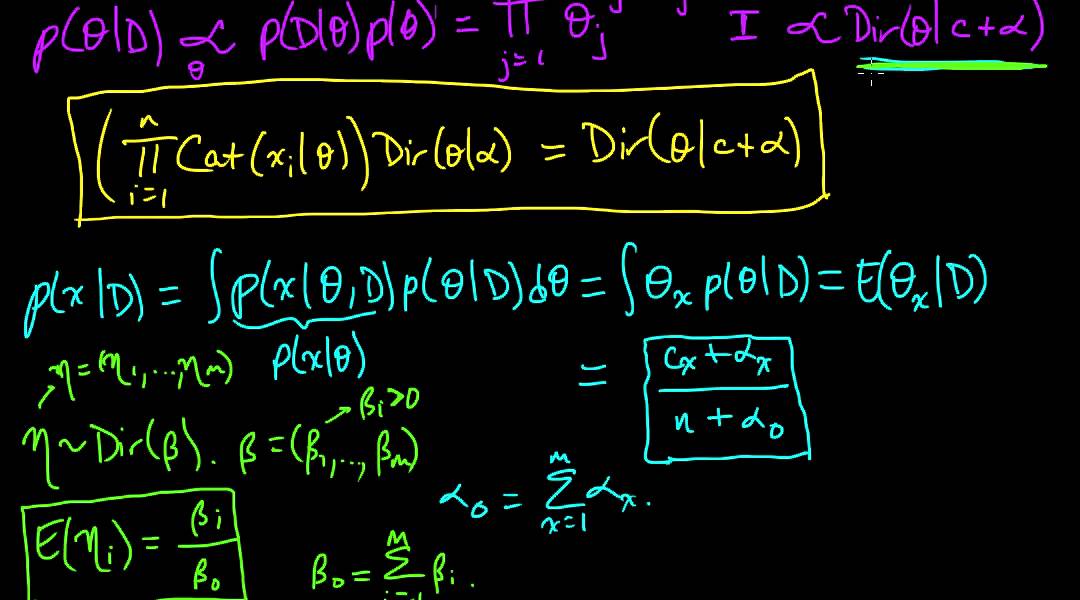 p(θ|D) ∝_θ p(D|θ)p(θ) = ∏_{j=1} θ_j I ∝ Dir(θ|c+α)
(∏_{i=1}^{n} Cat(x_i|θ)) Dir(θ|α) = Dir(θ|c+α)
p(x|D) = ∫ p(x|θ,D) p(θ|D) dθ = ∫ θ_x p(θ|D) = E(θ_x|D)
p(x|θ)
= (c_x + α_x) / (n + α_0)
η = (η_1, ..., η_m)
β_i > 0
η ~ Dir(β). β = (β_1, ..., β_m)
α_0 = ∑_{x=1}^{m} α_x.
E(η_i) = β_i / β_0
β_0 = ∑_{i=1}^{m} β_i.